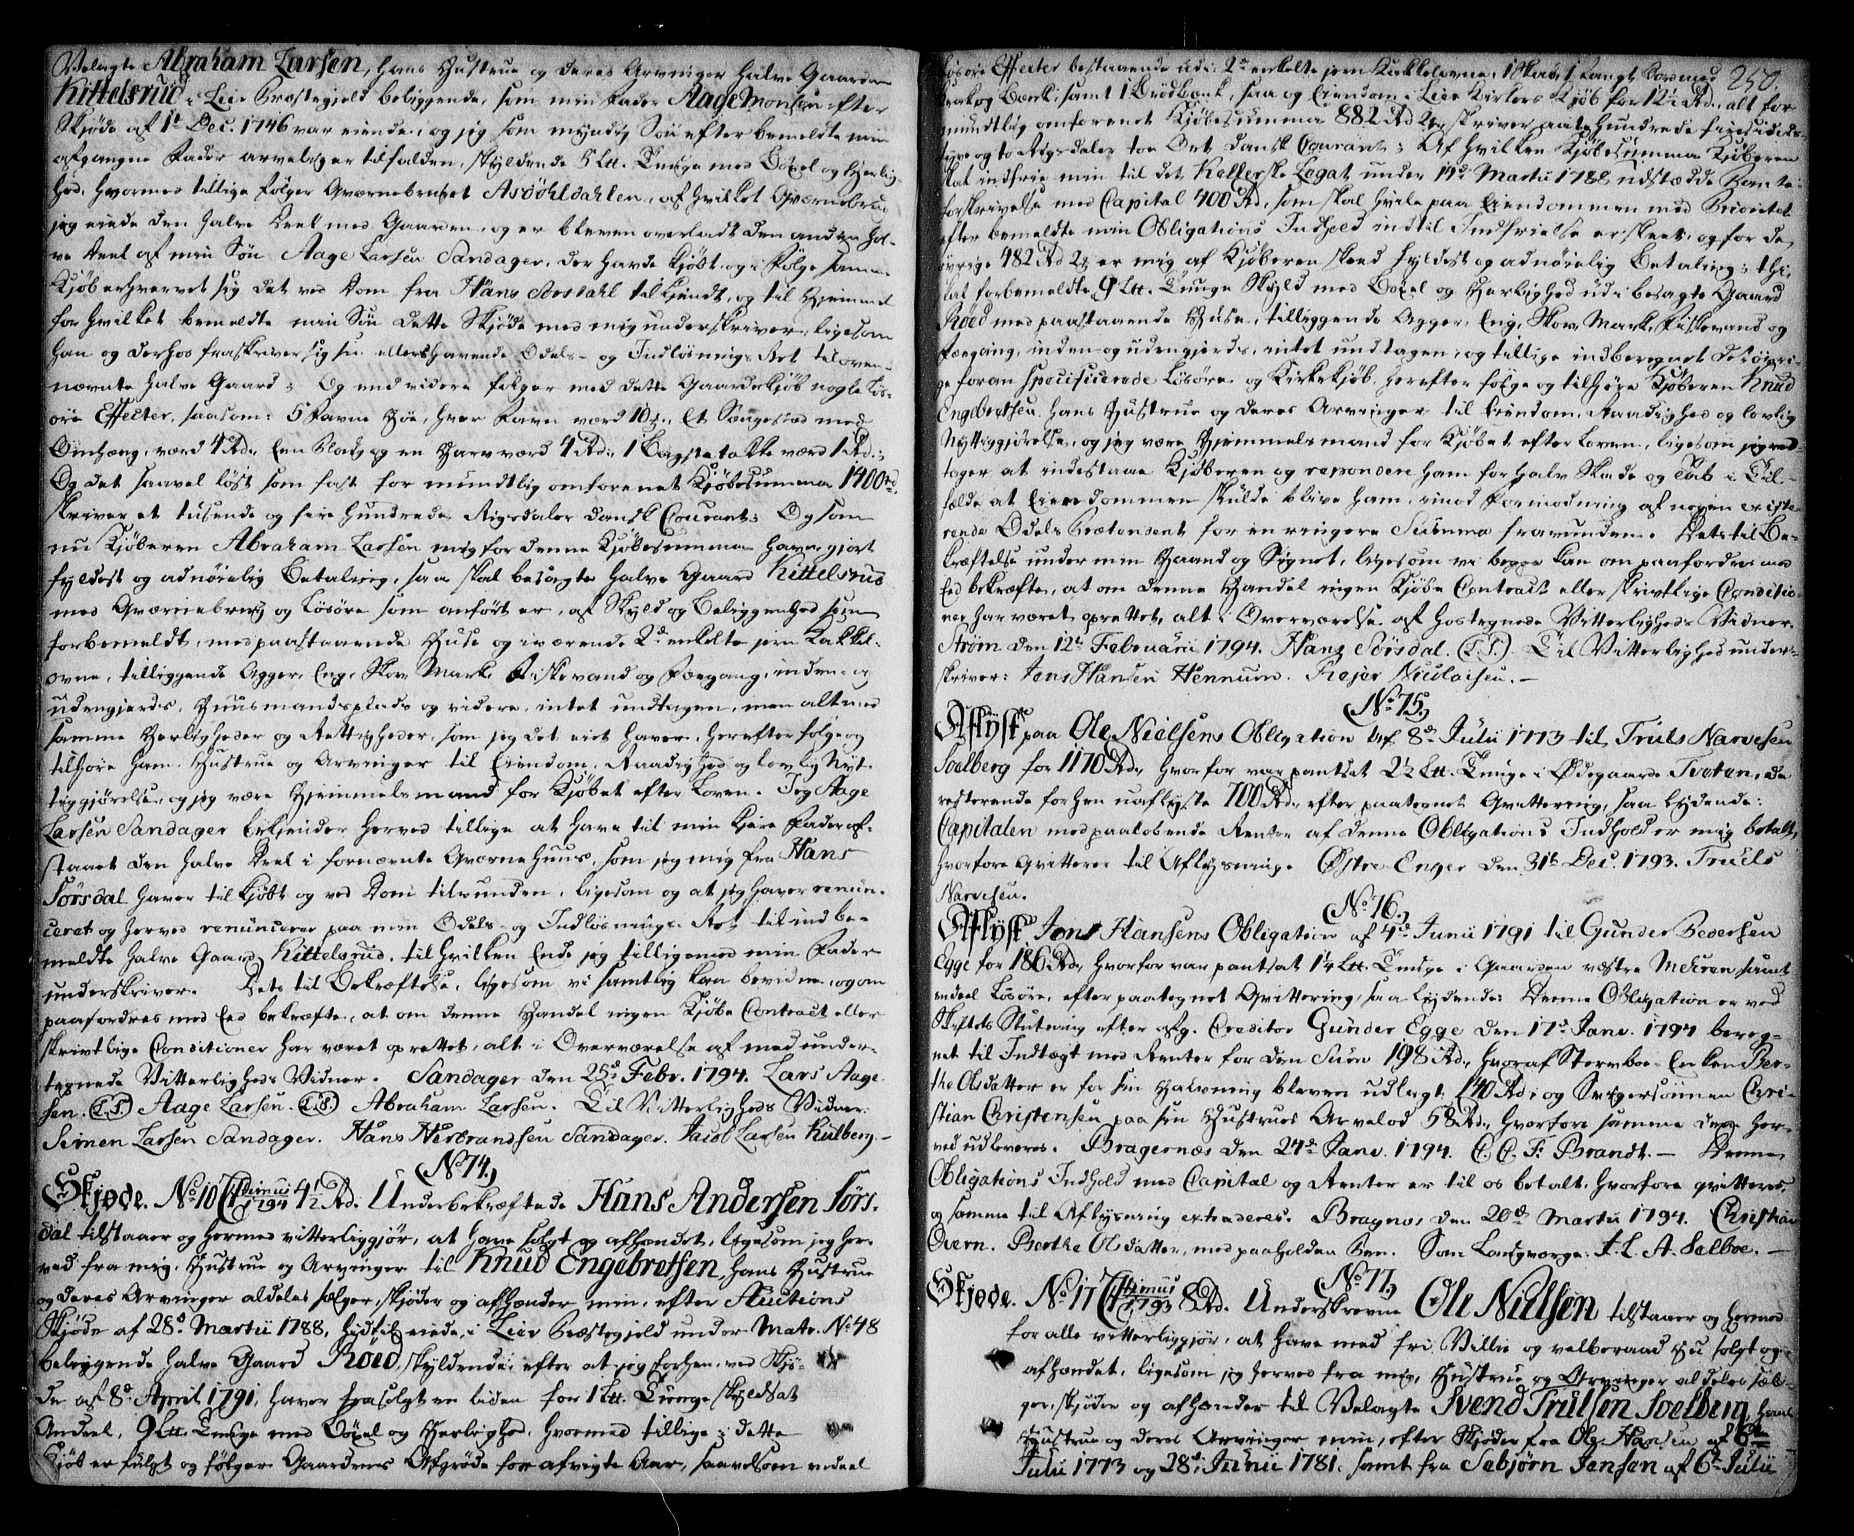 Velagte Abraham Larsen, hans Hustrue og deres Arvinger halve Gaarden
Kittelsrud i Lier Præstegjeld beliggende, som min Fader Aage Monsen efter
Skjøde af 1t Dec. 1746 var eiende, og jeg som myndig Søn efter bemeldte min
afgangne Fader arveliger tilfalden, skyldende 5 Ltt. Tunge med Bøxel og Herlig-
hed, hvormed tillige følger Qværnebruget Asdøhldahlen, af hvilket Qværnebrug
jeg eiede den halve Deel med Gaarden, og er bleven overladt den anden hal-
ve Deel af min Søn Aage Larsen Sandager, der havde kjøbt og i følge samme
Kjøb erhvervet sig det ved Dom fra Hans Sørsdahl tilkjendt, og til Hjemmel
for hvilket bemeldte min Søn dette Skjøde med mig underskriver, ligesom
han og derhos fraskriver sig sin ellers havende Odels- og Indløsnings Ret til oven-
nævnte halve Gaard; Og end videre følger med dette Gaardekjøb nogle Løs-
øre Effecter, saasom: 5 Favne Høe, hver Favn værd 10 ; Et Sengested med
Omhæng, værd 4 Rd., Een Slæde og en Harv værd 4 Rd., 1 Bagstetakke værd 1 Rd.;
Og det saavel løst som fast for mundtlig omforenet Kjøbesumma 1400 rd.
skriver et tusende og fire hundrede Rigsdaler dansk Courant; Og som
nu Kjøberen Abraham Larsen mig for denne Kjøbesumma haver gjort
fyldest og adnøielig Betaling, saa skal besagte halve Gaard Kittelsrud
med Qværnebrug og Løsøre som anført er, af Skyld og Beliggenhed som
forbemeldt, med paastaaende Huse og iværende 2de enkelte jern Kakkel-
ovne, tilliggende Agger, Eng, Skov, Mark, Fiskevand og Fægang, inden- og
udengjerds, Huusmandsplads og videre, intet undtagen, men alt med
samme Herligheder og Rettigheder, som jeg det eiet haver, herefter følge og
tilhøre ham, Hustrue og Arvinger til Eiendom, Raadighed og lovlig Nyt-
tiggjørelse, og jeg være Hjemmelsmand for Kjøbet efter Loven. Jeg Aage
Larsen Sandager tilkjender herved tillige at have til min kjere Fader af-
staaet den halve Deel i fornævnte Qværnehuus, som jeg mig fra Hans
Sørsdal haver tilkjøbt og ved Dom tilvunden, ligesom og at jeg haver renun-
ceret og herved renuncerer paa min Odels- og Indløsnings Ret til indbe-
meldte halve Gaard Kittelsrud, til hvilken Ende jeg tilligemed min Fader
underskriver. Dets til Bekræftelse, ligesom vi samtlig kan bevidne, og om
paafordres med Eed bekræfte, at om denne Handel ingen Kjøbe Contract eller
skrivtlige Conditioner har været oprettet, alt i Overværelse af med under-
tegnede Vitterligheds Vidner. Sandager den 25de Febr. 1794. Lars Aage-
sen. (L.S.) Aage Larsen. (L.S.) Abraham Larsen. Til Vitterligheds Vidner:
Simen Larsen Sandager. Hans Herbrandsen Sandager. Jacob Larsen Kulberg.
No 74.
Skjøde. No 10 Ct. Primus 1794 4½ Rd. Underbekræftede Hans Andersen Sørs-
dal tilstaaer og hermed vitterliggjør, at have solgt og afhændet, ligesom jeg her-
ved fra mig, Hustrue og Arvinger til Knud Engebretsen, hans Hustrue
og deres Arvinger aldeles sælger, skjøder og afhænder min, efter Auctions
Skjøde af 28de Martii 1788, hidtil eiede, i Lier Præstegjeld under Matr. No 48
beliggende halve Gaard Roed, skyldende, efter at jeg forhen ved Skjø-
de af 8de April 1791, haver frasolgt en liden for 1 Ltt. Tunge skyldsat
Andeel, 9 Ltt. Tunge med Bøxel og Herlighed, hvormed tillige i dette
Kjøb er fulgt og følger Gaardens Afgrøde for afvigte Aar, saavelsom endeel
250.
Løsøre Effecter bestaaende udi: 2de enkelte jern Kakkelovne, 1 Skab, 1 langt Bord med
Krak og Bænk, samt 1 Brødbænk, saa og Eiendom i Lier Kirkers Kjøb for 12½ Rd., alt for
mundtlig omforenet Kjøbesumma 882 Rd. skriver aatte hundrede firesindst-
tyve og to Rigsdaler Dansk Courant; Af hvilken Kjøbesumma Kjøberen
skal indfrie min til det Kellerske Legat under 14de Martii 1788 udstædde Pante-
forskrivelse med Capital 400 Rd., som skal hvile paa Eiendommen med Prioritet
efter bemeldte min Obligations Indhold indtil Indfrielse er skeet, og for de
øvrige 482 Rd. er mig af Kjøberen skeed fyldest og adnøielig Betaling; thi
skal forbemeldte 9 Ltt. Tunge Skyld med Bøxel og Herlighed udi besagte Gaard
Roed med paastaaende Huse, tilliggende Agger, Eng, Skov, Mark, Fiskevand og
Fægang, inden- og udengjerds, intet undtagen, og tillige indberegnet de
foran specificerede Løsøre og Kirkekjøb, herefter følge og tilhøre Kjøberen Knud
Engebretsen, hans Hustrue og deres Arvinger til Eiendom, Raadighed og lovlig
Nyttiggjørelse, og jeg være Hjemmelsmand for Kjøbet efter Loven, ligesom jeg ved-
tager at indestaae Kjøberen og respondere ham for halv Skade og Tab i Til-
fælde at Eiendommen skulde blive ham, imod Formodning af nogen existe-
rende Odels Prætendent for en ringere Summa fravunden. Dets til Be-
kræftelse under min Haand og Signet, ligesom vi begge kan om paafordres med
Eed bekræfte, at om denne Handel ingen Kjøbe Contract eller skrivtlige Conditio-
ner har været oprettet, alt i Overværelse af hostegnede Vitterligheds Vidner.
Strøm den 12te Februarii 1794. Hans Sørsdal. (L.S.) Til Vitterlighed under-
skriver: Jens Hansen Hennum. Rejer Nicolaisen.
No 75.
Aflyst paa Ole Nielsens Obligation af 8de Julii 1773 til Truls Narvesen
Solberg for 1170 Rd., hvorfor var pantsat 2½ Ltt. Tunge i Ødegaarde Tveten, de
resterende forhen uaflyste 700 Rd., efter paategnet Qvittering, saa lydende:
Capitalen med paaløbende Renter af denne Obligations Indhold er mig betalt,
hvorfore qvitterer til Aflysning. Østre Enger den 31te Dec. 1793. Truels
Narvesen.
No 76.
Aflyst Jens Hansens Obligation af 4de Junii 1791 til Gunder Pedersen
Egge for 186 Rd., hvorfor var pantsat 1¼ Ltt. Tunge i Gaarden væstre Mehren, samt
endeel Løsøre, efter paategnet Qvittering, saa lydende: Denne Obligation er ved
Skiftets Slutning efter afg. Creditor Gunder Egge den 17de Janv. 1794 bereg-
net til Indtægt med Renter for den Sum 198 Rd., hvoraf Stervboe-Enken Ber-
the Olsdatter er for sin Halvning bleven udlagt 140 Rd., og Svigersønnen Chri-
stian Christensen paa sin Hustrues Arvelod 58 Rd., hvorfore samme dem her-
ved udleveres. Bragernæs den 24de Janv. 1794. C. C. F. Brandt. — Denne
Obligations Indhold med Capital og Renter er til os betalt, hvorfore qvitteres,
og samme til Aflysning extraderes. Bragnes den 20de Martii 1794. Christian
Overn. Berthe Olsdatter, med paaholden Pen. Som Laugværge: F. L. A. Selboe.
No 77.
Skjøde. No 17 Ct. Primus 1793 8 Rd. Underskrevne Ole Nielsen tilstaaer og hermed
for alle vitterliggjør, at have med fri Villie og velberaad Hu solgt og
afhændet, ligesom jeg herved fra mig, Hustrue og Arvinger aldeles sæl-
ger, skjøder og afhænder til Velagte Svend Trulsen Soelberg, hans
Hustrue og deres Arvinger min, efter Skjøder fra Ole Hansen af 6te
Julii 1773 og 28de Junii 1781, samt fra Sebjørn Jensen af 6te Julii